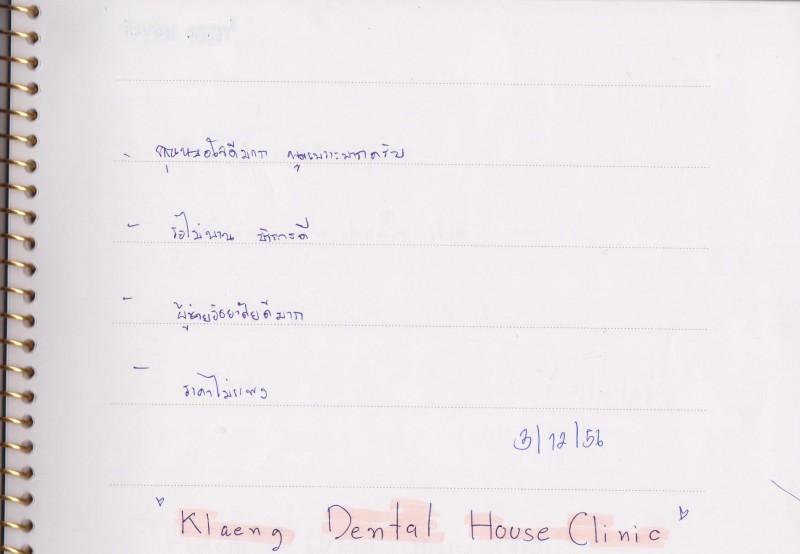 - คุณหมอใจดีมาก พูดเพราะมากครับ
- รอไม่นาน บริการดี
- ผู้ช่วยอัธยาศัยดีมาก
- ราคาไม่แพง
3/12/56
Klaeng Dental House Clinic